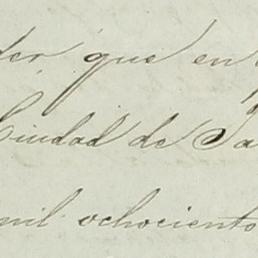 der que en
Ciudad de Sa
mil ochociento